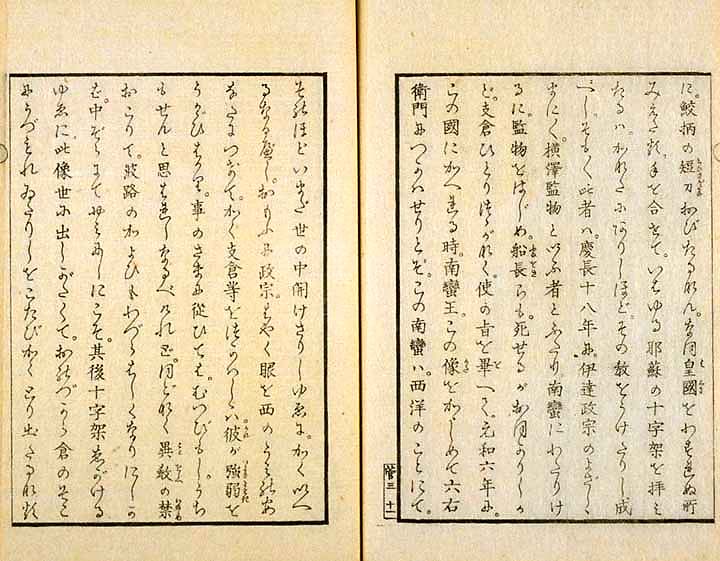 に。鮫柄の短刀おびたるなれん。なほ皇國をわすれぬ所
みえたり。手を合せて。いはゆる耶蘇の十字架を拝み
たるハ。かれたにありしほど。その教をうけたりし成
べし。そも〳〵此者ハ。慶長十八年に。伊達政宗のよざしの
まに〳〵。横澤監物といふ者とふたり。南蠻にわたりけ
るに。監物をはじめ。船長らも。死せるがおほかりしか
ど。支倉ひとりはつゝがなく。使の旨を畢へて。元和六年に。
この國にかへれる時。南蠻王。この像をかゝしめて六右
衛門につかハせりとぞ。この南蠻ハ。西洋のことにて。
菅三 十一
そのほどハいまだ世の中開けざりしゆゑに。かくいへ
るなるべし。おもふに政宗。はやく眼を西のうみのあ
なたにつけて。かく支倉等をつかハしゝハ。彼が強弱を
うかゞひはかり。事のさまに従ひてはむつびもし。うち
もせんと思はれしなるべけれど。ほどなく異教の禁
おこりて。波路のかよひもわづらはしくなりにしか
ば。中ぞらにてやみにしにこそ。其後十字架ゑがける
ゆゑに。此像世に出しがたくて。おのづから倉のそこ
にうづもれゐたりしをこたびかくとり出たるなれど